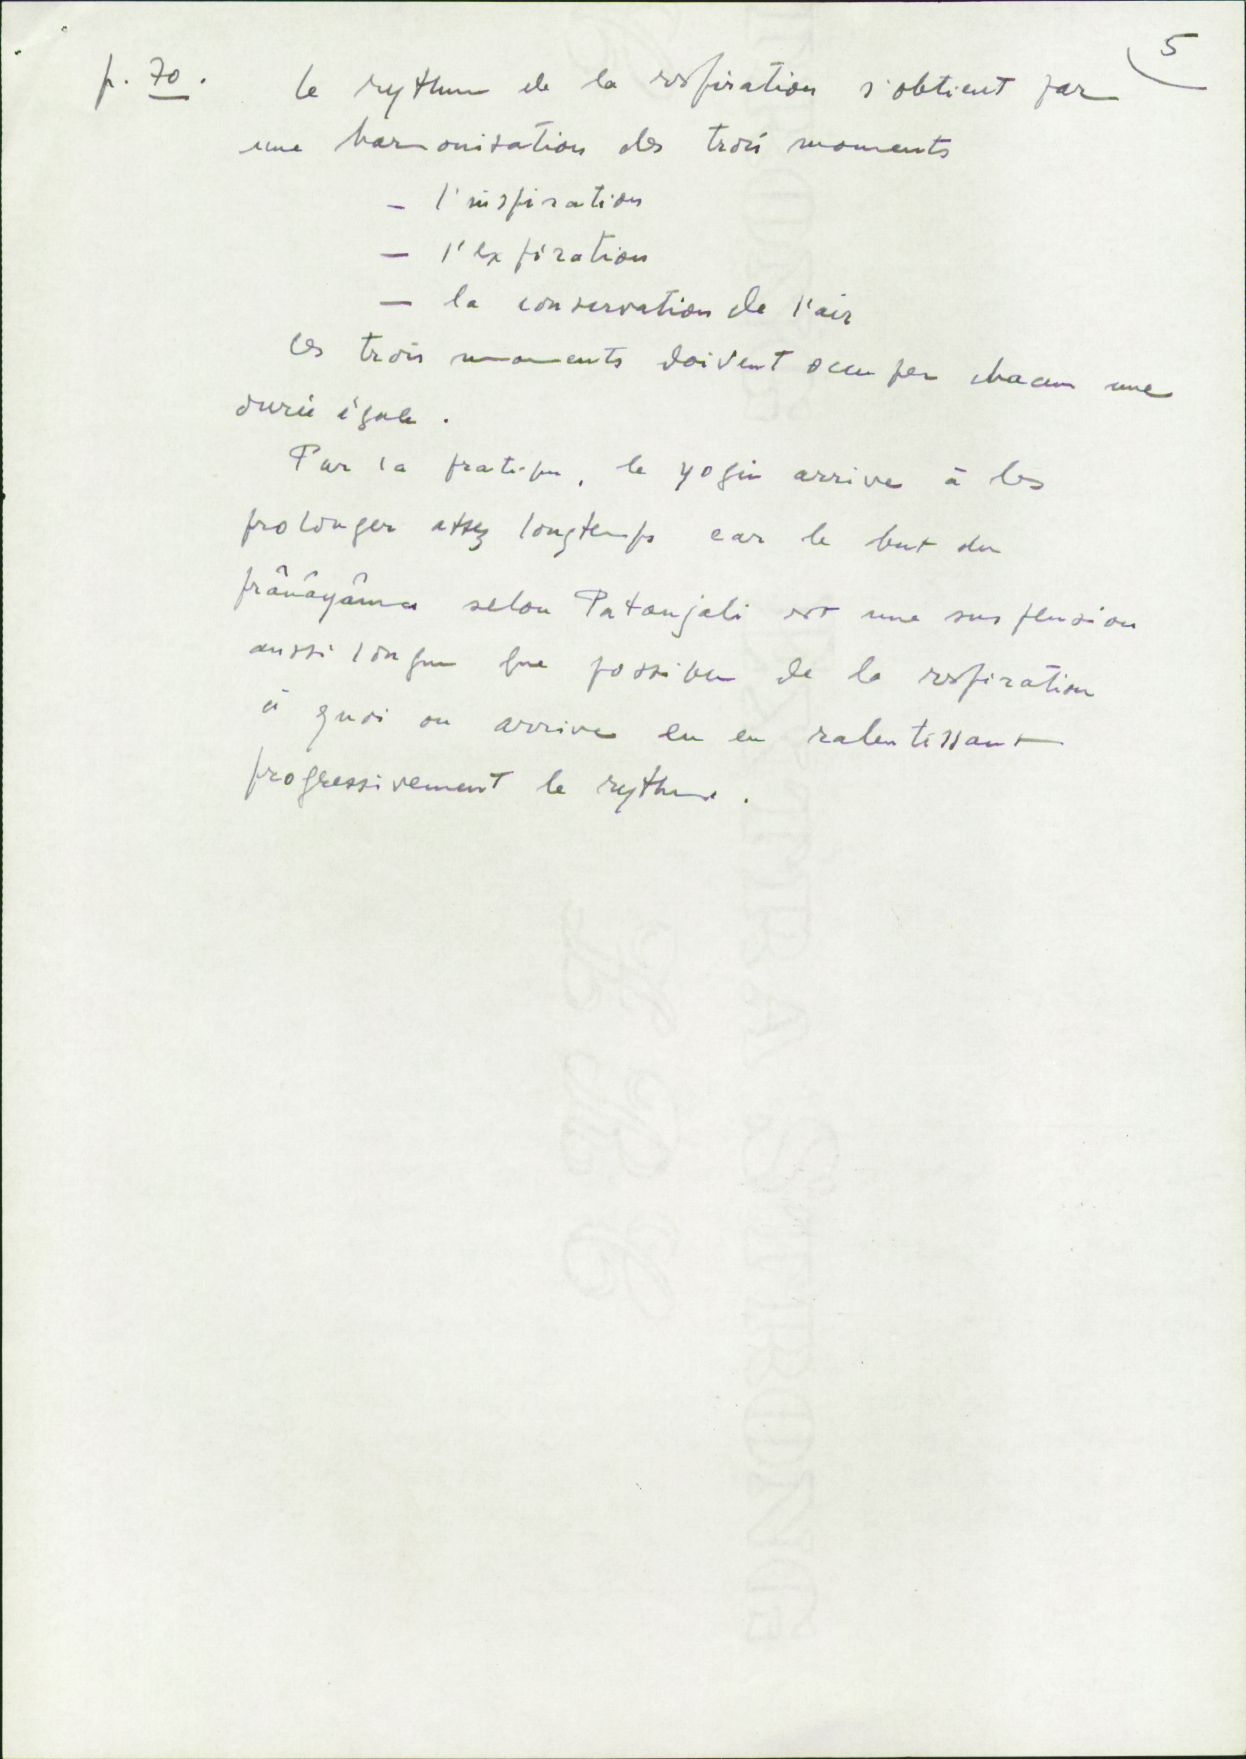 5
p. 70. le rythme de la respiration s'obtient par
une harmonisation des trois moments
- l'inspiration
- l'expiration
- la conservation de l'air
Ces trois moments doivent occuper chacun une
durée égale.
Par la pratique, le yogin arrive à les
prolonger assez longtemps car le but du
prânâyâma selon Patanjali est une suspension
aussi longue que possible de la respiration
à quoi on arrive en en ralentissant
progressivement le rythme.